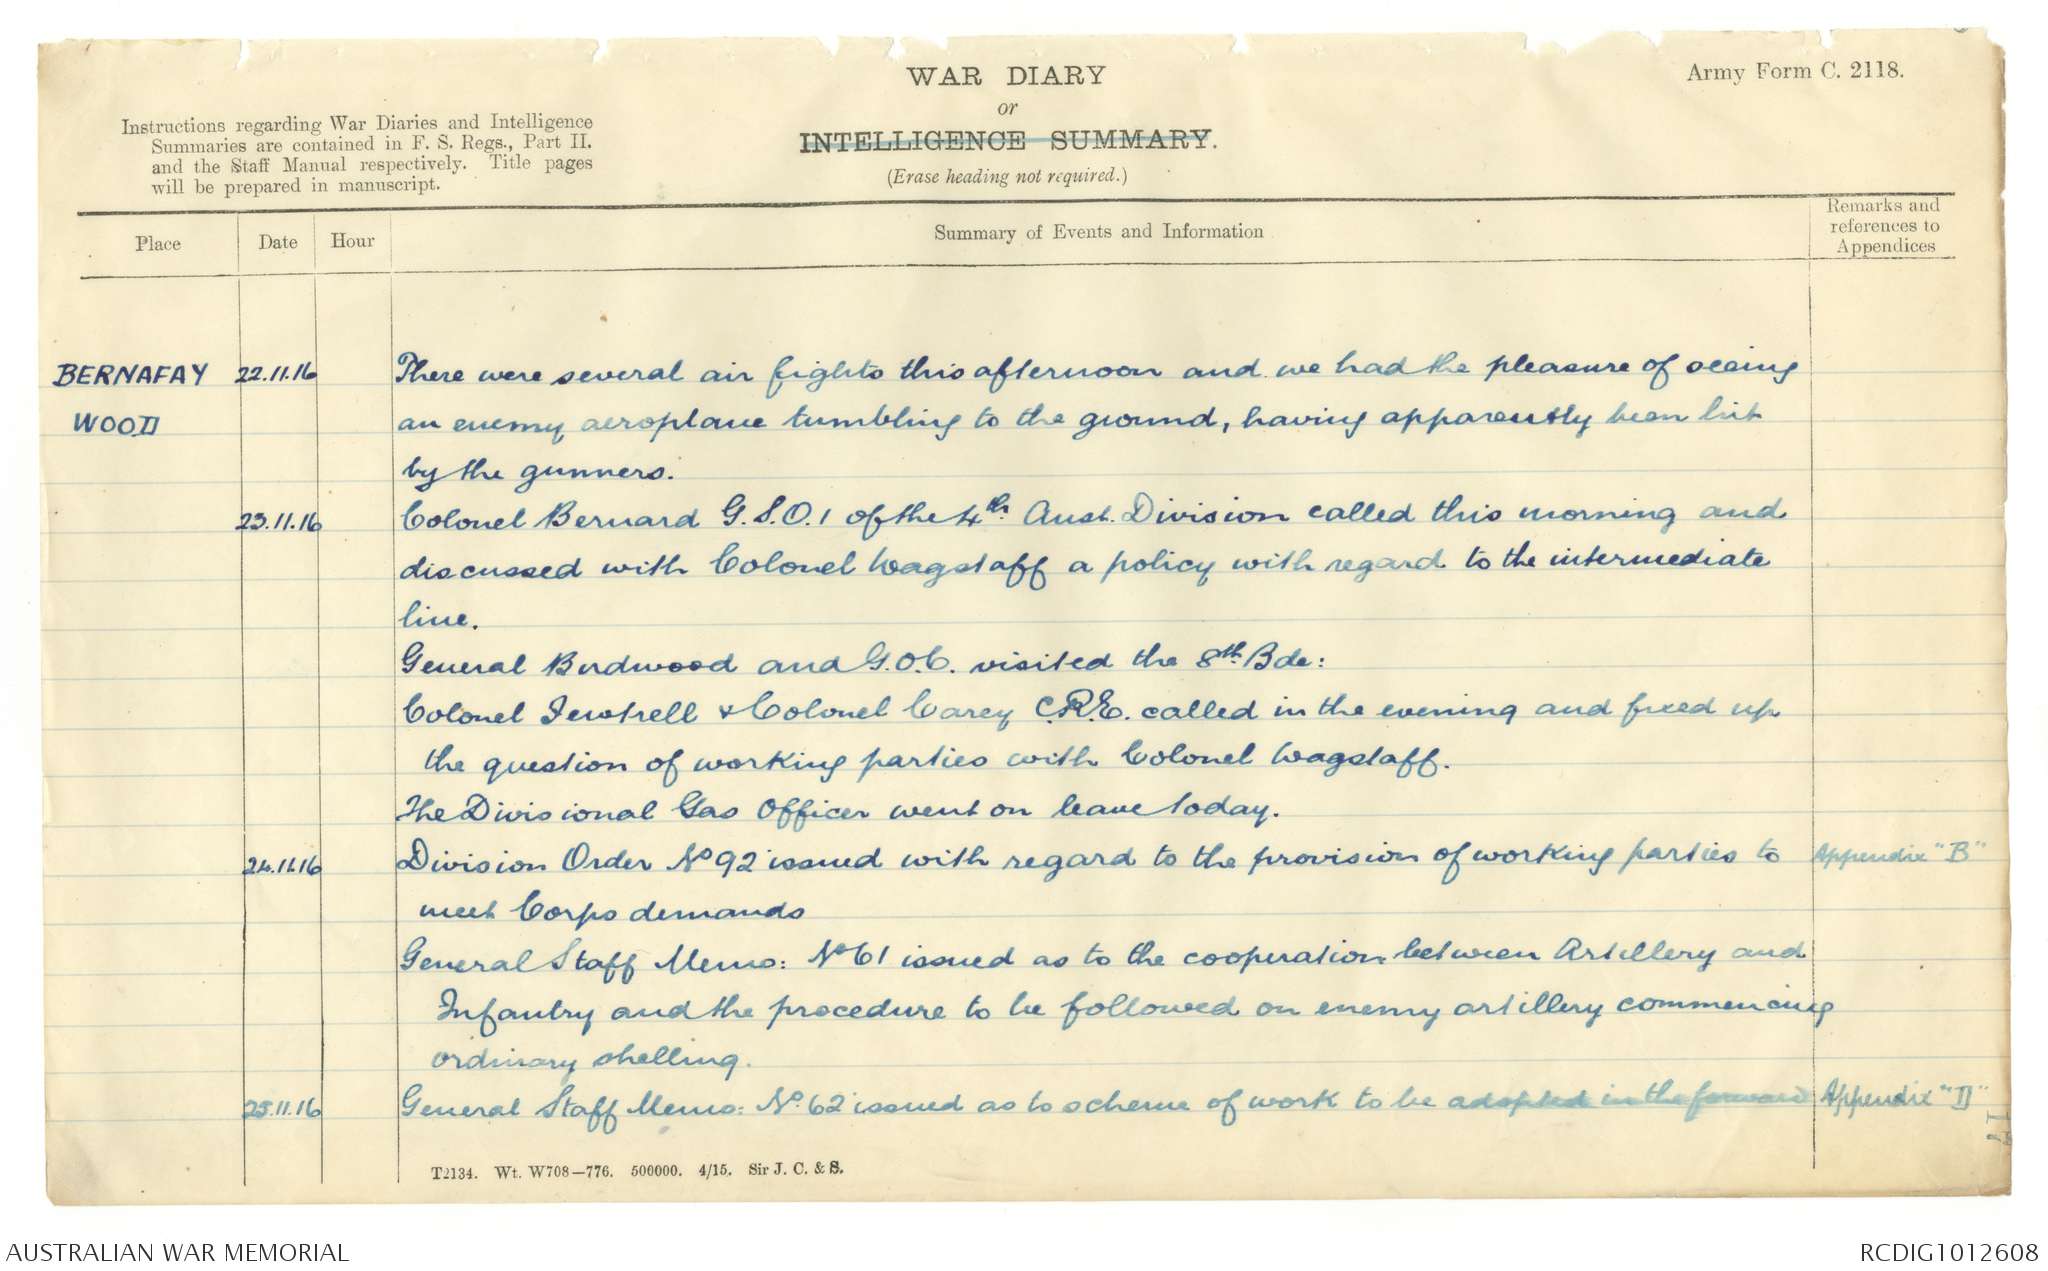 WAR DIARY
or
INTELLIGENCE SUMMARY.
(Erase heading not required.)
Army Form C. 2118.
Instructions regarding War Diaries and Intelligence
Summaries are contained in F. S. Regs., Part II.
and the Staff Manual respectively. Title pages
will be prepared in manuscript.
Place Date Hour Summary of Events and Information Remarks and
references to
Appendices
BERNAFAY 22.11.16 There were several air fights this afternoon and we had the pleasure of seeing
WOOD an enemy aeroplane tumbling to the ground, having apparently been hit
by the gunners.
23.11.16 Colonel Bernard G.S.O.1 of the 4th Aust. Division called this morning and
discussed with Colonel Wagstaff a policy with regard to the intermediate
line.
General Birdwood and G.O.C. visited the 8th Bde:
Colonel Fewtrell & Colonel Carey C.R.E. called in the evening and fixed up
the question of working parties with Colonel Wagstaff.
The Divisional Gas Officer went on leave today.
24.11.16 Division Order No 92 issued with regard to the provision of working parties to Appendix "B"
meet Corps demands
General Staff Memo: No 61 issued as to the cooperation between Artillery and
Infantry and the procedure to be followed on enemy artillery commencing
ordinary shelling.
25.11.16 General Staff Memo: No. 62 issued as to scheme of work to be adopted in the forward Appendix "D"
T2134. Wt. W708—776. 500000. 4/15. Sir J. C. & S.
AUSTRALIAN WAR MEMORIAL
RCDIG1012608